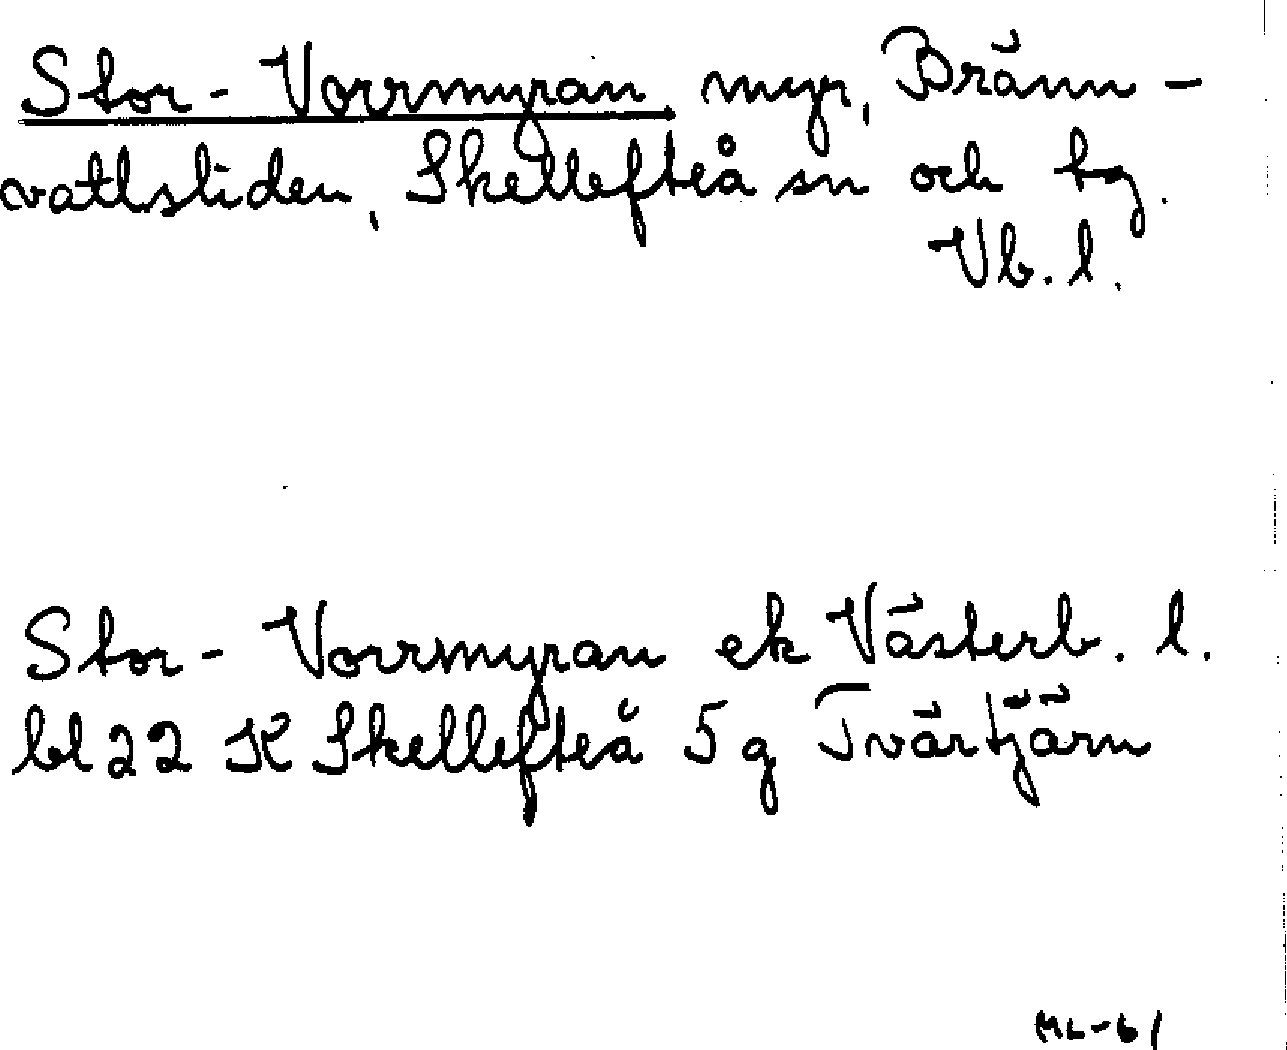 Stor-Vorrmyran myr, Bränn-
vattsliden, Skellefteå sn och tg.
Vb. l.
Stor-Vorrmyran ek Västerb. l.
bl 22 K Skellefteå 5 g Tvärtjärn
ML-61